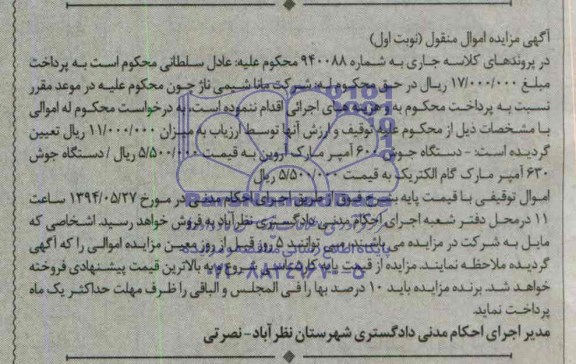 آگهی مزایده اموال منقول (نوبت اول)
در پرونده‌های کلاسه جاری به شماره ۹۴۰۰۸۸ محکوم علیه: عادل سلطانی محکوم است به پرداخت
مبلغ ۱۷/۰۰۰/۰۰۰ ریال در حق محکوم له: شرکت مانا شیمی ناژ چون محکوم علیه در موعد مقرر
نسبت به پرداخت محکوم به و هزینه های اجرائی اقدام ننموده است، به درخواست محکوم له اموالی
با مشخصات ذیل از محکوم علیه توقیف و ارزش آنها توسط ارزیاب به میزان ۱۱/۰۰۰/۰۰۰ ریال تعیین
گردیده است: - دستگاه جوش ۶۰۰ آمپر مارک آروین به قیمت ۵/۵۰۰/۰۰۰ ریال / دستگاه جوش
۶۳۰ آمپر مارک گام الکتریک به قیمت ۵/۵۰۰/۰۰۰ ریال
اموال توقیفی با قیمت پایه بشرح فوق از طریق اجرای احکام مدنی در مورخ ۱۳۹۴/۰۵/۲۷ ساعت
۱۱ در محل دفتر شعبه اجرای احکام مدنی دادگستری نظرآباد به فروش خواهد رسید. اشخاصی که
مایل به شرکت در مزایده می باشند، می توانند ۵ روز قبل از روز معین مزایده اموالی را که آگهی
گردیده ملاحظه نمایند. مزایده از قیمت پایه کارشناسی شروع و به بالاترین قیمت پیشنهادی فروخته
خواهد شد. برنده مزایده باید ۱۰ درصد بها را فی المجلس و الباقی را ظرف مهلت حداکثر یک ماه
پرداخت نماید.
مدیر اجرای احکام مدنی دادگستری شهرستان نظرآباد - نصرتی